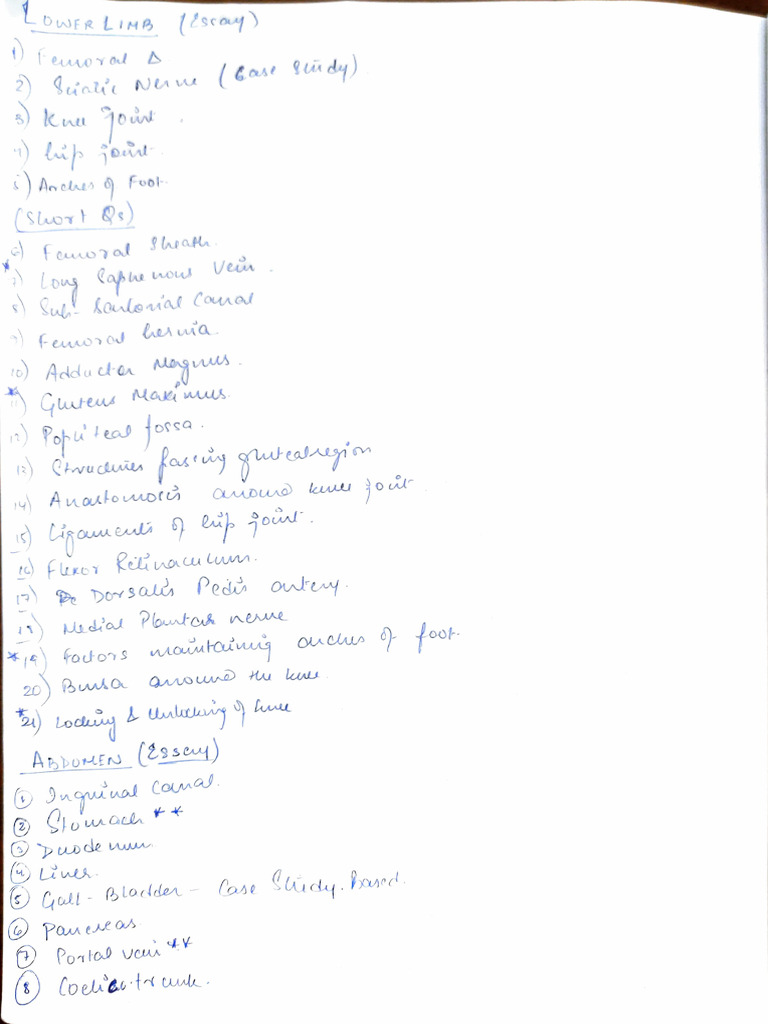 LOWER LIMB (Essay)
1) Femoral Δ
2) Sciatic Nerve (Case Study)
3) Knee joint.
4) hip joint.
5) Arches of Foot.
(Short Qs)
6) Femoral Sheath.
* 7) Long Saphenous Vein.
8) Sub-Sartorial Canal
9) Femoral hernia.
10) Adductor Magnus.
* 11) Gluteus Maximus.
12) Popliteal fossa.
13) Structures passing gluteal region
14) Anastomosis around knee joint.
15) Ligaments of hip joint.
16) Flexor Retinaculum.
17) Dorsalis Pedis artery.
18) Medial Plantar nerve
* 19) Factors maintaining arches of foot.
20) Bursa around the knee.
* 21) Locking & Unlocking of knee
ABDOMEN (Essay)
1 Inguinal Canal.
2 Stomach **
3 Duodenum
4 Liver.
5 Gall-Bladder - Case Study. Based.
6 Pancreas
7 Portal vein **
8 Coeliac trunk.